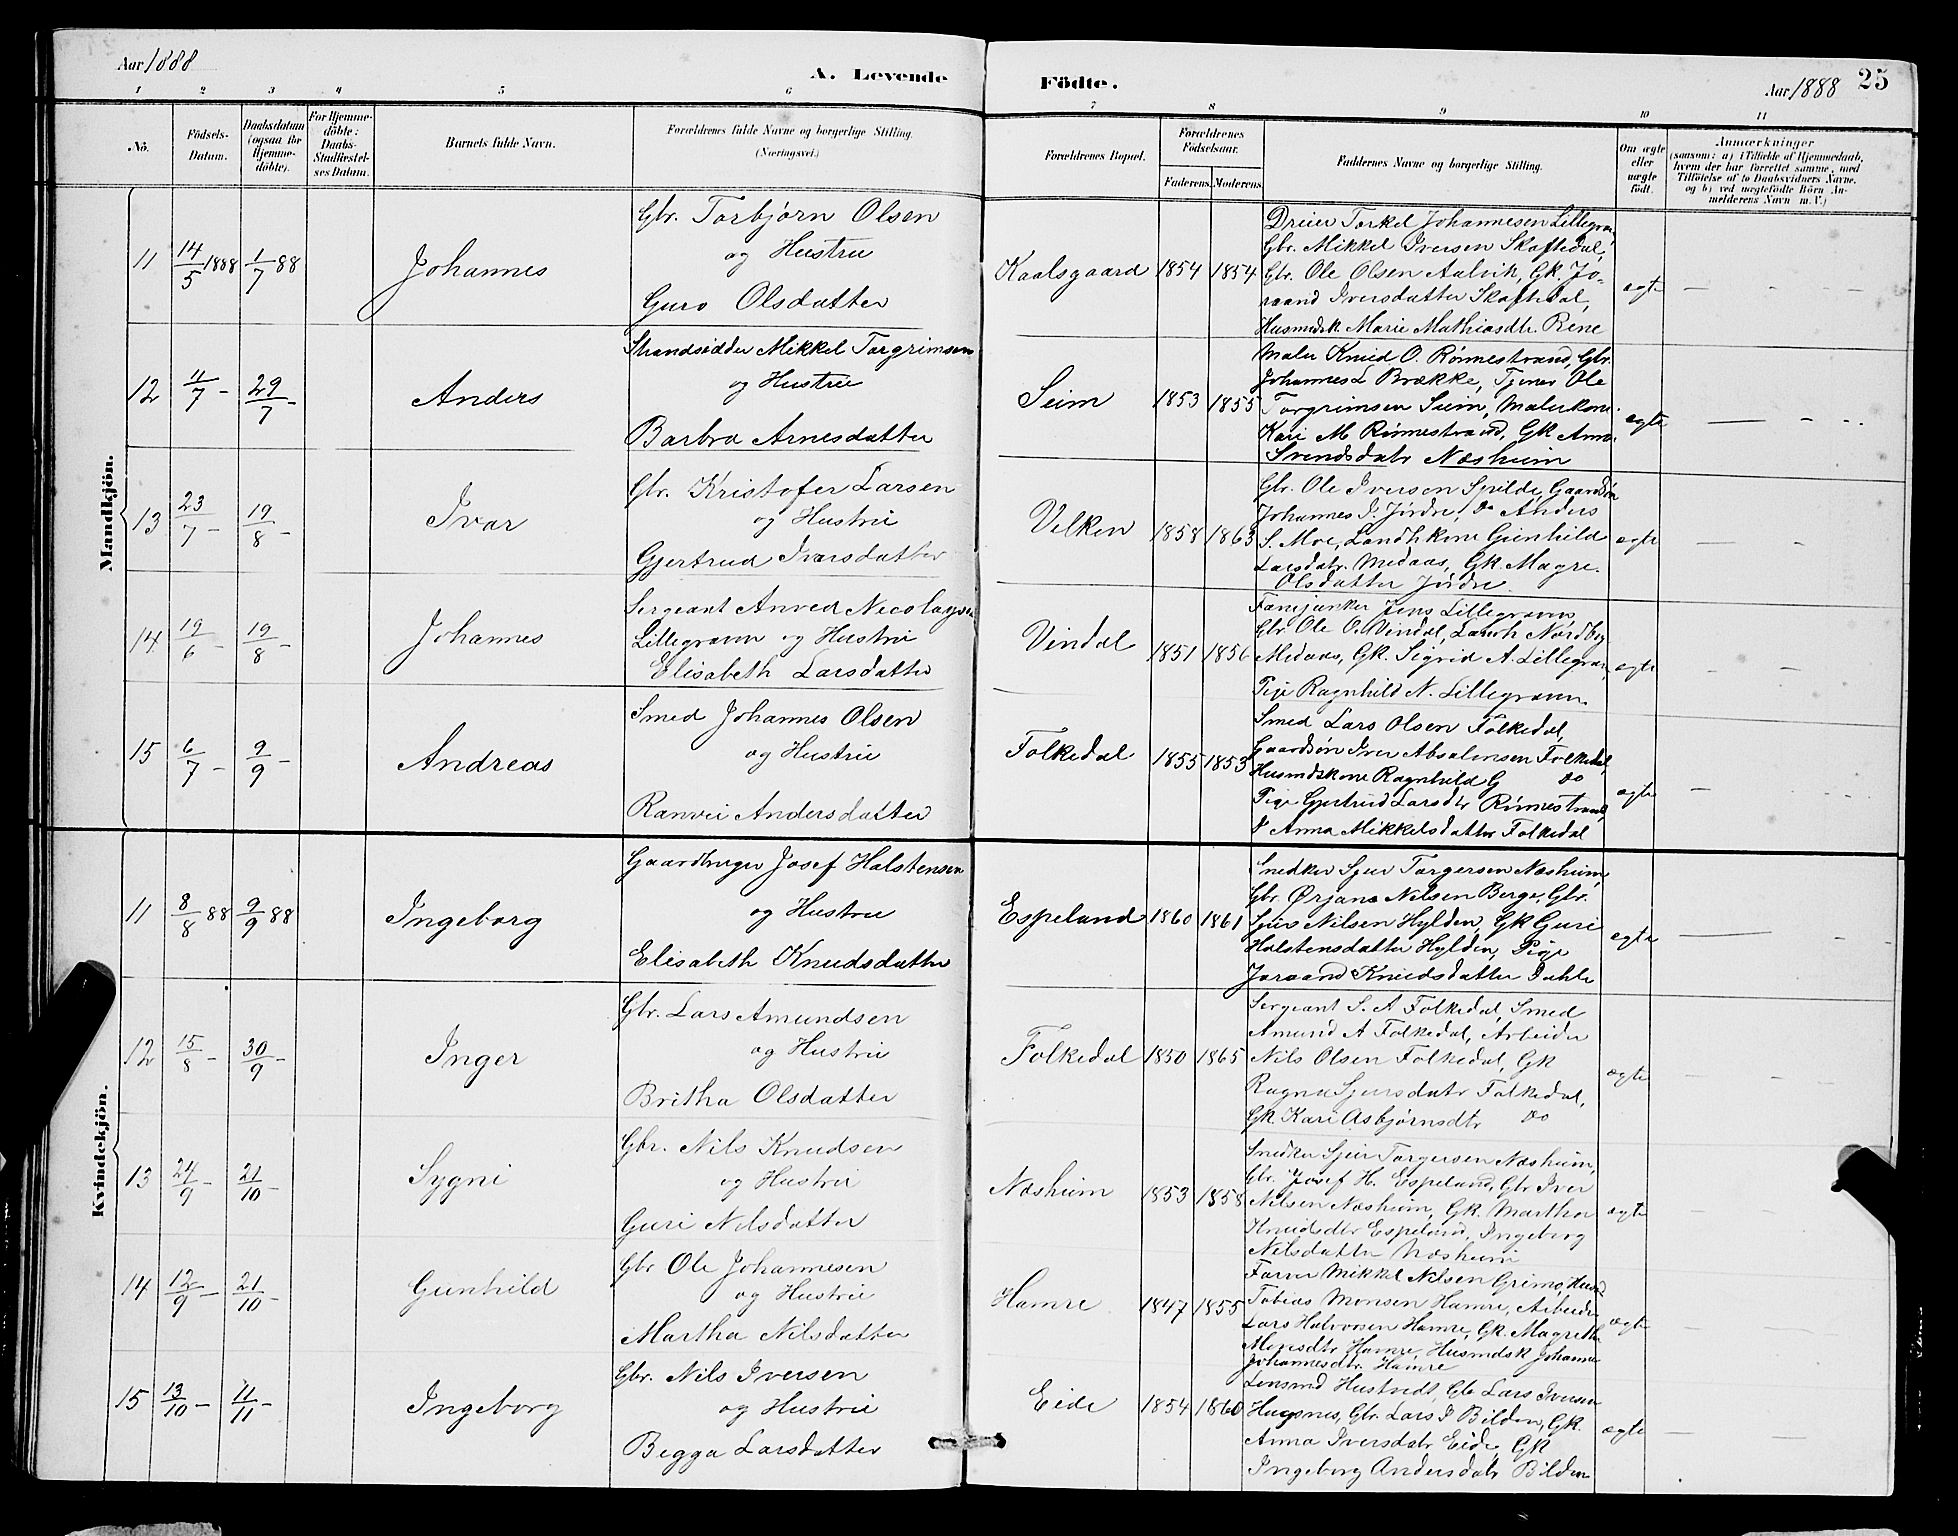 Aar 1888
A. Levende
Födte.
Aar 1888 25
1 2 3 4 5 6 7 8 9 10 11
No.
Födsels-
Datum.
Daabsdatum
(ogsaa for
Hjemme-
döbte).
For Hjemme-
döbte:
Daabs-
Stadfæstel-
ses Datum.
Barnets fulde Navn.
Forældrenes fulde Navne og borgerlige Stilling.
(Næringsvei.)
Forældrenes Bopæl.
Forældrenes
Födselsaar.
Faderens. Moderens.
Faddernes Navne og borgerlige Stilling.
Om ægte
eller
uægte
født.
Anmærkninger
(saasom: a) i Tilfælde af Hjemmedaab,
hvem der har forrettet samme, med
Tilføielse af to Daabsvidners Navne.
og b) ved uægtefödte Börn An-
melderens Navn m. V.)
Mandkjön.
11 14/5 1888 1/7 88 Johannes
Gbr. Torbjørn Olsen
og Hustru
Guro Olsdatter
Kaalsgaard 1854 1854
Dreier Torkel Johannesen Lillegravn,
Gbr. Mikkel Iversen Skaftedal,
Gbr. Ole Olsen Aalvik, Gk. Jo-
raand Iversdatter Skaftedal,
Husmdsk Marie Mathiasdtr. Rene
ægte
12 11/7 - 29/7 - Anders
Strandsidder Mikkel Torgrimsen
og Hustru
Barbra Arnesdatter
Seim 1853 1855
Maler Knud O. Rönnestrand, Gbr.
Johannes L Brække, Tjener Ole
Torgrimsen Seim, Malerkone
Kari M Rönnestrand, Gk Anna
Svendsdatr Næsheim
ægte
13 23/7 - 19/8 - Ivar
Gbr. Kristofer Larsen
og Hustru
Gjertrud Ivarsdatter
Velken 1858 1863
Gbr. Ole Iversen Spilde, Gaardsön
Johannes I. Jördre, Do Anders
S. Moe, Landhkone Gunhild
Larsdatr. Medaas, Gk. Magre.
Olsdatter Jördre.
ægte
14 19/6 - 19/8 - Johannes
Sergeant Anved Nicolaysen
Lillegravn og Hustru
Elisabeth Larsdatter
Vindal 1851 1856
Fanejunker Jens Lillegravn,
Gbr Ole O. Vindal, Landh Nordby
Medaas, Gk. Sigrid A. Lillegravn,
Pige Ragnhild N. Lillegravn.
ægte
15 6/7 - 9/9 - Andreas
Smed Johannes Olsen
og Hustru
Ranvei Andersdatter
Folkedal 1855 1853
Smed Lars Olsen Folkedal,
Gaardsön Iver Absalonsen Folkedal,
Husmdskone Ragnhild G do
Pige Gjertrud Larsdtr Rönnestrand,
& Anna Mikkelsdatter Folkedal
ægte
Kvindekjön.
11 8/8 88 9/9 88 Ingeborg
Gaardbruger Josef Halstensen
og Hustru
Elisabeth Knudsdatter
Espeland 1860 1861
Snedker Sjur Torgersen Næsheim,
Gbr. Ørjans Nilsen Berge, Gbr.
Sjur Nilsen Hylden, Gk Guri
Halstensdatter Hylden, Pige
Joraand Knudsdatter Dahle
ægte
12 15/8 - 30/9 - Inger
Gbr. Lars Amundsen
og Hustru
Britha Olsdatter
Folkedal 1850 1865
Sergeant S. A Folkedal, Smed
Amund A Folkedal, Arbeider
Nils Olsen Folkedal, Gk
Ragna Sjursdatr Folkedal,
Gk. Kari Asbjørnsdtr do
ægte
13 24/9 - 21/10 - Sygni
Gbr. Nils Knudsen
og Hustru
Guri Nilsdatter
Næsheim 1853 1858
Snedker Sjur Torgersen Næsheim,
Gbr. Josef H. Espeland, Gbr Iver
Nilsen Næsheim, Gk. Martha
Knudsdtr Espeland, Ingeborg
Nilsdatter Næsheim
ægte
14 12/9 - 21/10 - Gunhild
Gbr Ole Johannesen
og Hustru
Martha Nilsdatter
Hamre 1847 1855
Farver Mikkel Nilsen Grimo, Husmd
Tobias Monsen Hamre, Arbeider
Lars Halvorsen Hamre, Gk. Magrethe
Monsdtr Hamre, Husmdsk Johanna
Johannesdtr. Hamre
ægte
15 13/10 - 11/11 - Ingeborg
Gbr. Nils Iversen
og Hustru
Begga Larsdatter
Eide 1854 1860
Lensmd Hustvedt, Gbr Lars Iversen
Hugsnes, Gbr. Lars I Bilden, Gk.
Anna Iversdatr Eide, Gk
Ingeborg Andersdatr Bilden
ægte